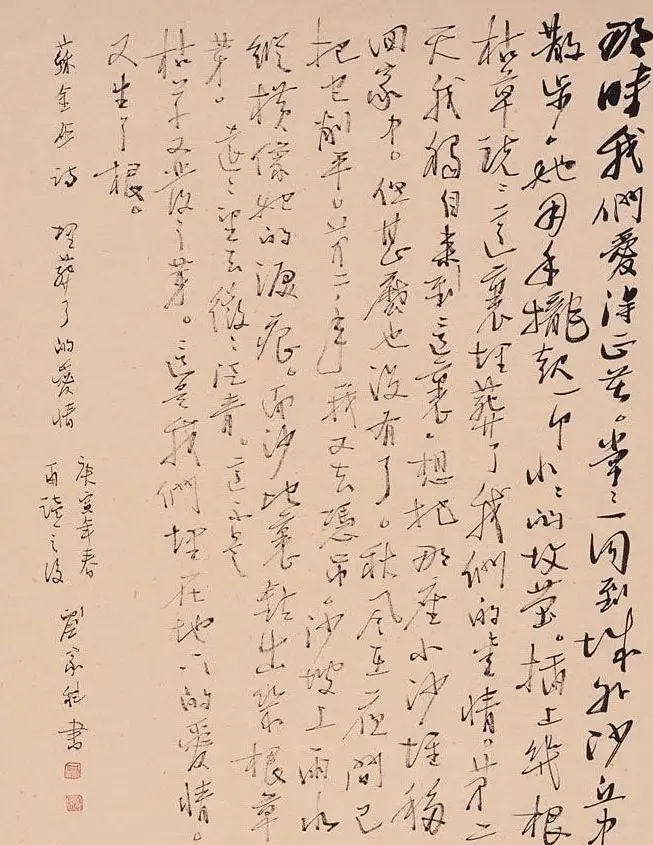 那時我們愛得正苦。常〻一同到城外沙丘
散步。她用手攏起一个小〻的墳塋。插上幾根
枯草說〻這裏埋葬了我們的愛情。第二
天我獨自來到這裏。想把那座小沙堆移
回家中。但甚麼也沒有了。秋風在夜間已
把它削平。第二年我又去憑弔沙坡上雨水
縱橫像她的淚痕。而沙地裏鑽出幾根草
芽。遠〻望去微〻泛青。這不是
枯草又發了芽。這是我們埋在地下的愛情。
又生了根。
蘇金傘詩 埋葬了的愛情
庚寅年春
劉家科書